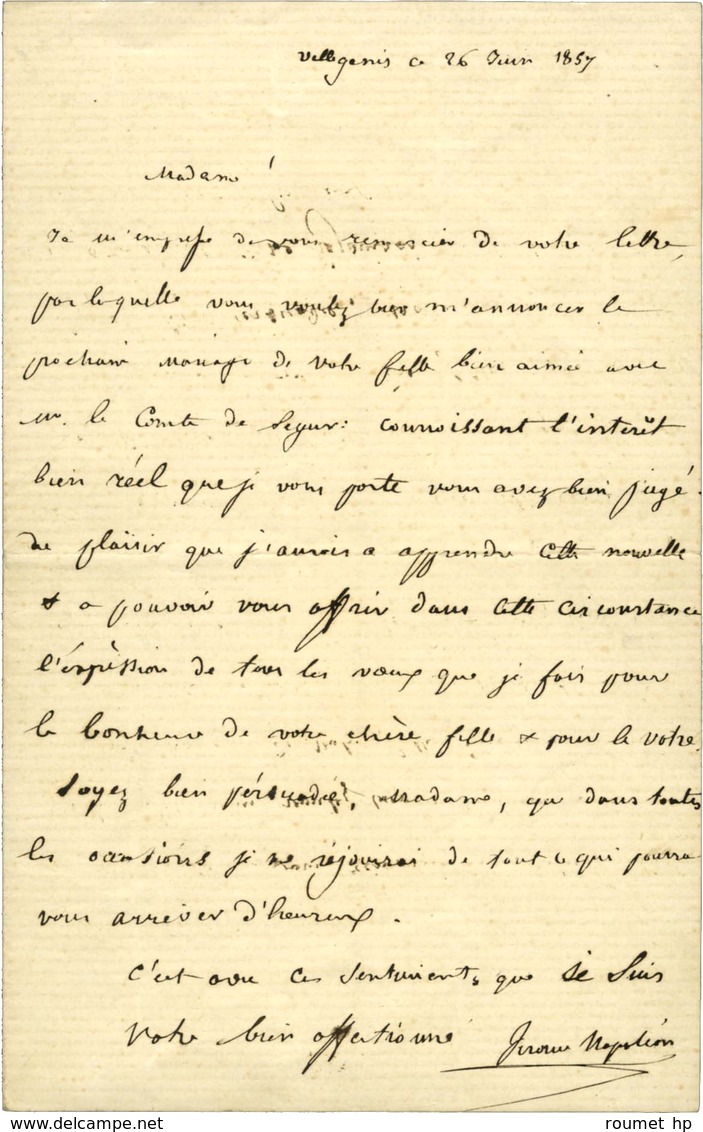 Villegenis ce 26 Juin 1857
Madame
Je m'empresse de vous remercier de votre lettre,
par laquelle vous voulez bien m'annoncer le
prochain mariage de votre fille bien aimée avec
Mr. le Comte de Segur: connoissant l'interêt
bien réel que je vous porte vous avez bien jugé
du plaisir que j'aurois a apprendre cette nouvelle
& a pouvoir vous offrir dans cette circonstance
l'expression de tous les vœux que je fais pour
le bonheur de votre chère fille & pour le votre.
Soyez bien persuadée, Madame, que dans toutes
les occasions je me réjouirai de tout ce qui pourra
vous arriver d'heureux.
C'est avec ces sentiments que je suis
votre bien affectionné
Jérome Napoléon
roumet hp